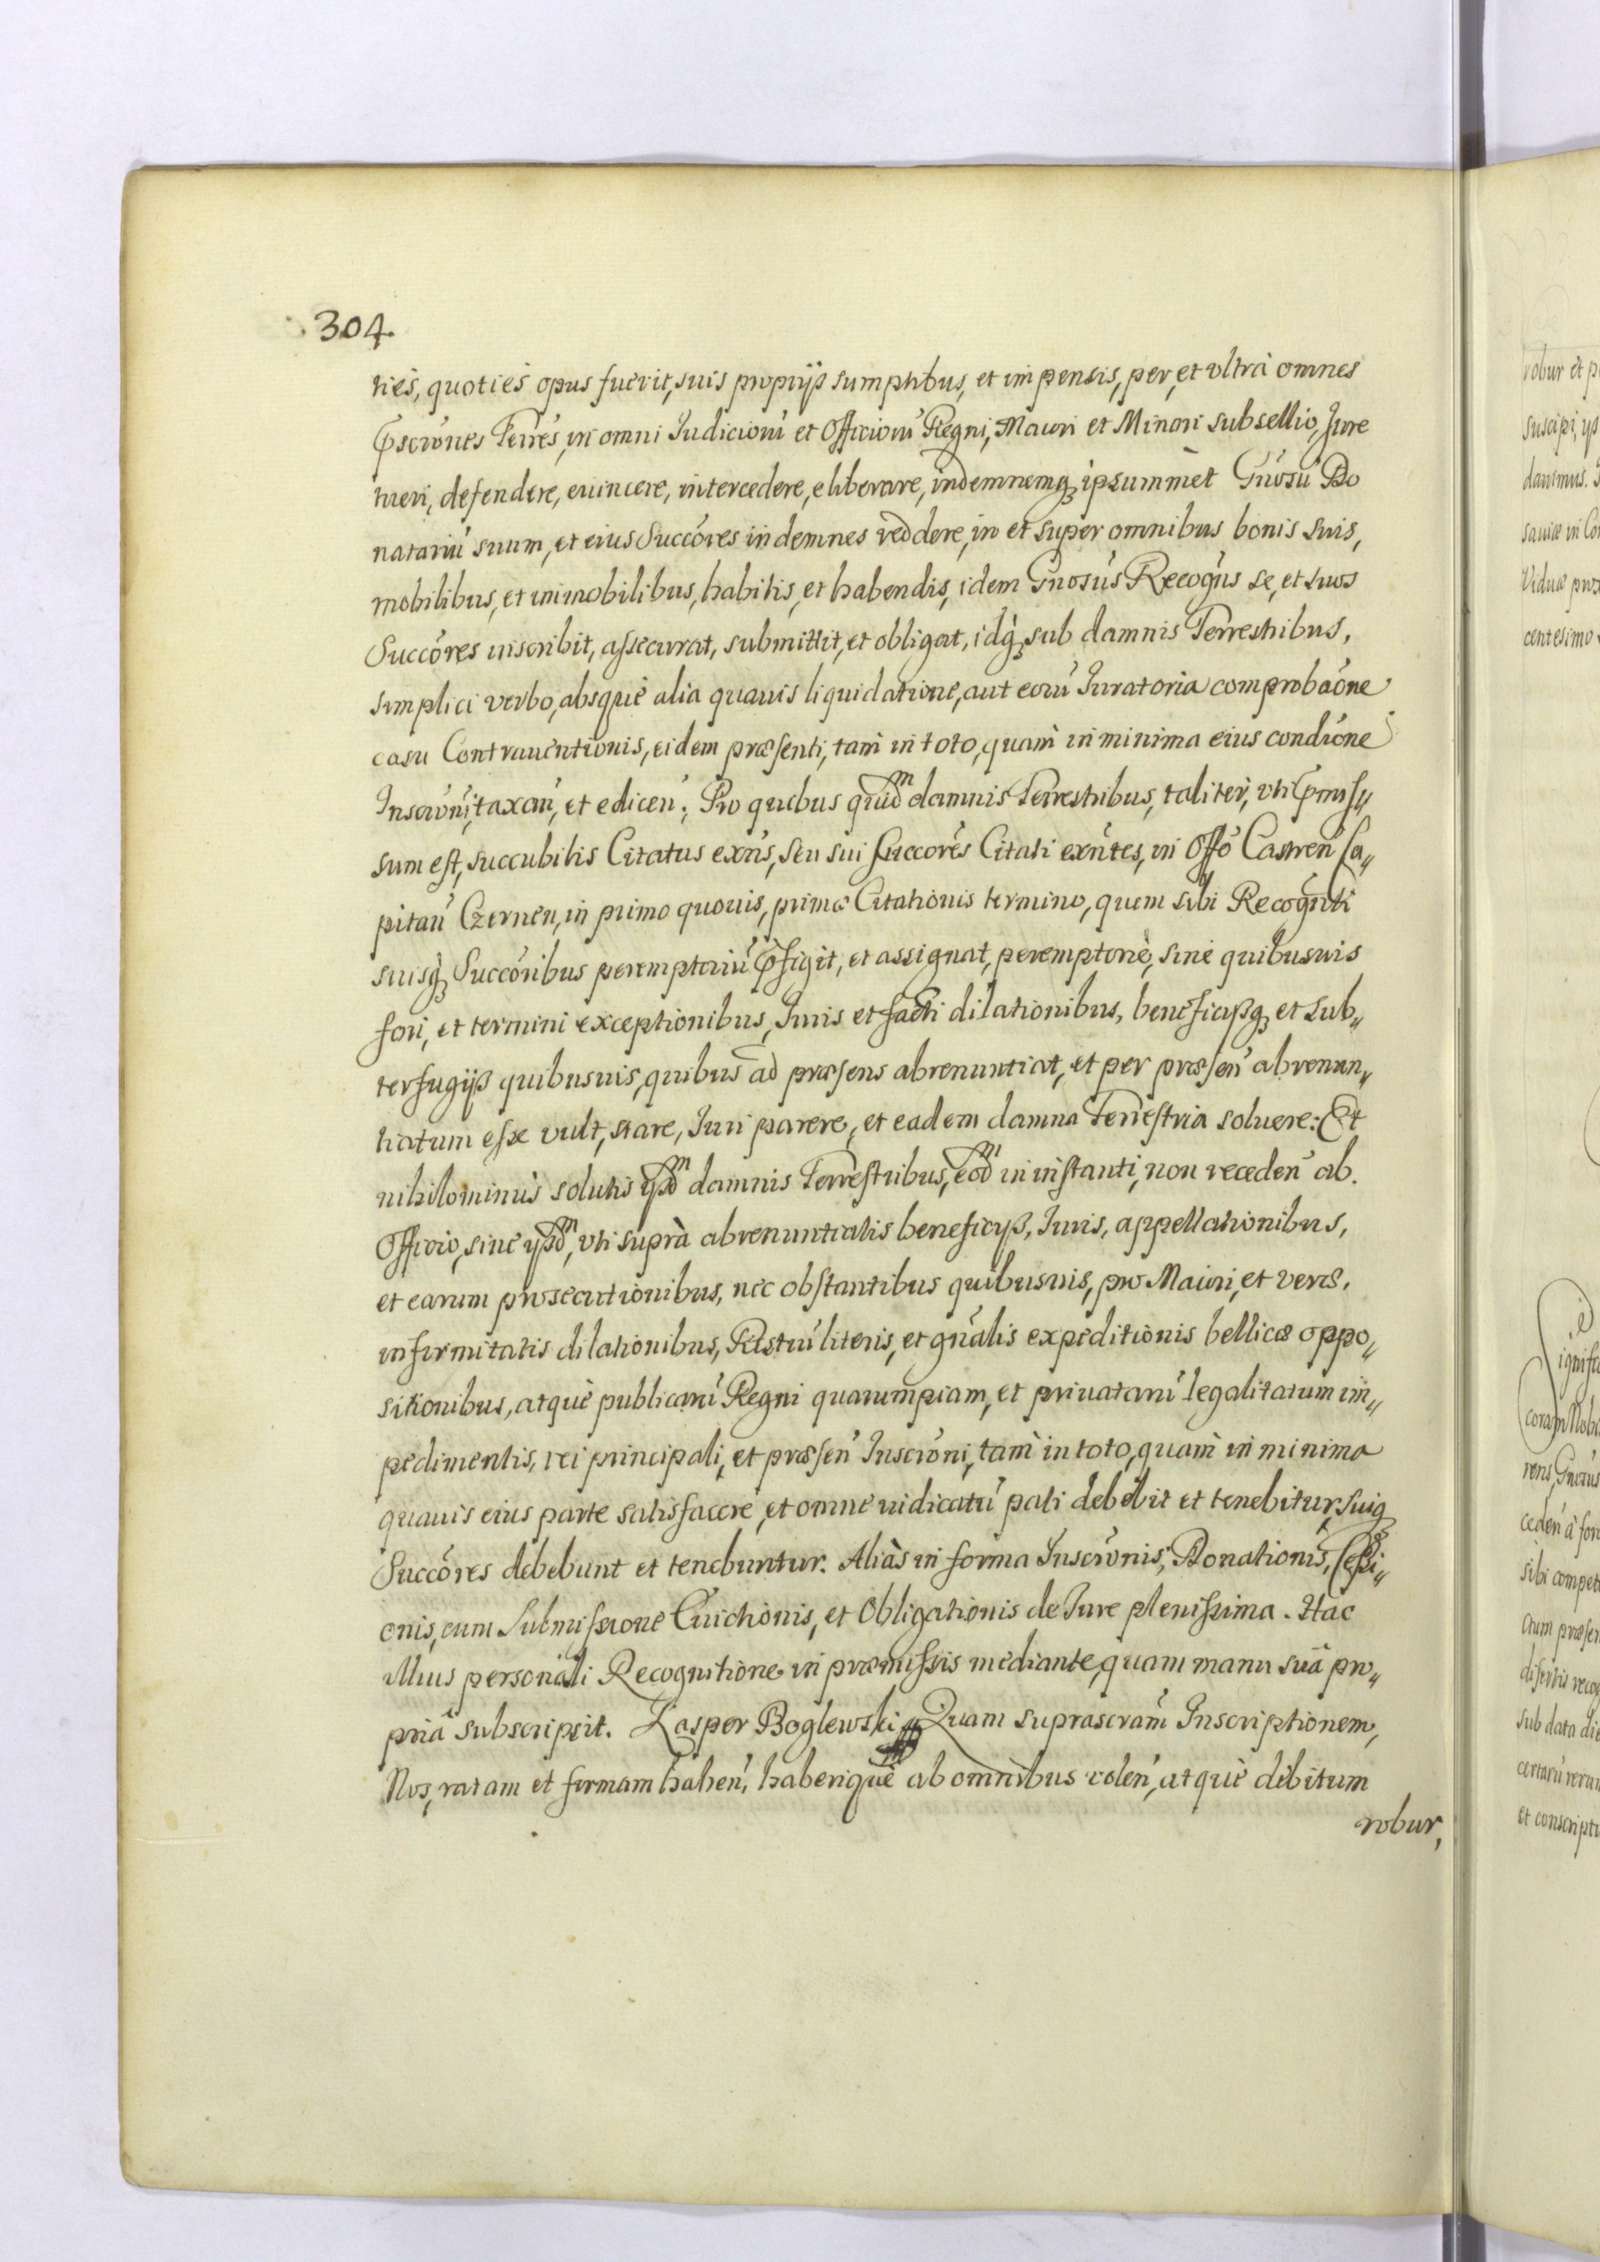 304.
ties, quoties opus fuerit, suis proprijs sumptibus, et impensis, per, et vltra omnes
Terres, in omni Iudicioru et Officioru Regni, Maiori et Minori subsellio, Iure
tueri, defendere, euincere, intercedere, eliberare, indemnemq ipsummet Gnosu Do
natariu suum, et eius Succores indemnes reddere, in et super omnibus bonis suis,
mobilibus, et immobilibus, habitis, et habendis, idem Gnosus Recogns se, et suos
Succores inscribit, assecurat, submittit, et obligat, idq sub damnis Terrestribus,
simplici verbo, absque alia quauis liquidatione, aut eoru Iuratoria comprobaone
casu Contrauentionis, eidem præsenti, tam in toto, quam in minima eius condione
Inscroni, taxan, et edicen; Pro quibus quidm damnis Terrestribus, taliter, vti
sum est, succubitis Citatus exns, seu sui Succores Citati exntes, in Offo Castren Ca„
pitan Czernen, in primo quouis, primæ Citationis termino, quem sibi Recognti
suisq Succoribus peremptoriu figit, et assignat, peremptorie, sine quibusuis
fori, et termini exceptionibus, Iuris et facti dilationibus, beneficijsq et sub„
terfugijs quibusuis, quibus ad præsens abrenuntiat, et per præsen abrenun„
tiatum esse vult, stare, Iuri parere, et eadem damna Terrestria soluere: Et
nihilominus solutis ijsdm damnis Terrestribus, eodm in instanti, non receden ab.
Officio, sine ijsdm, vti supra abrenuntiatis beneficijs, Iuris, appellationibus,
et earum prosecutionibus, nec obstantibus quibusuis, pro Maiori, et veræ,
infirmitatis dilationibus, literis, et gnalis expeditionis bellicæ oppo„
sitionibus, atque publicaru Regni quarumpiam, et priuataru legalitatum im„
pedimentis, rei principali, et præsen Inscroni, tam in toto, quam in minima
quauis eius parte satisfacere, et omne iudicatu pati debebit et tenebitur, suiq
Succores debebunt et tenebuntur. Alias in forma Inscronis, Donationis, Cessi„
onis, cum Submissione Euictionis, et Obligationis de Iure plenissima. Hac
illius personali Recognitione in præmissis mediante, quam manu sua pro„
pria subscripsit. Kasper Boglewski Quam suprascram Inscriptionem,
Nos, ratam et firmam haben, haberique ab omnibus volen, atque debitum
robur,